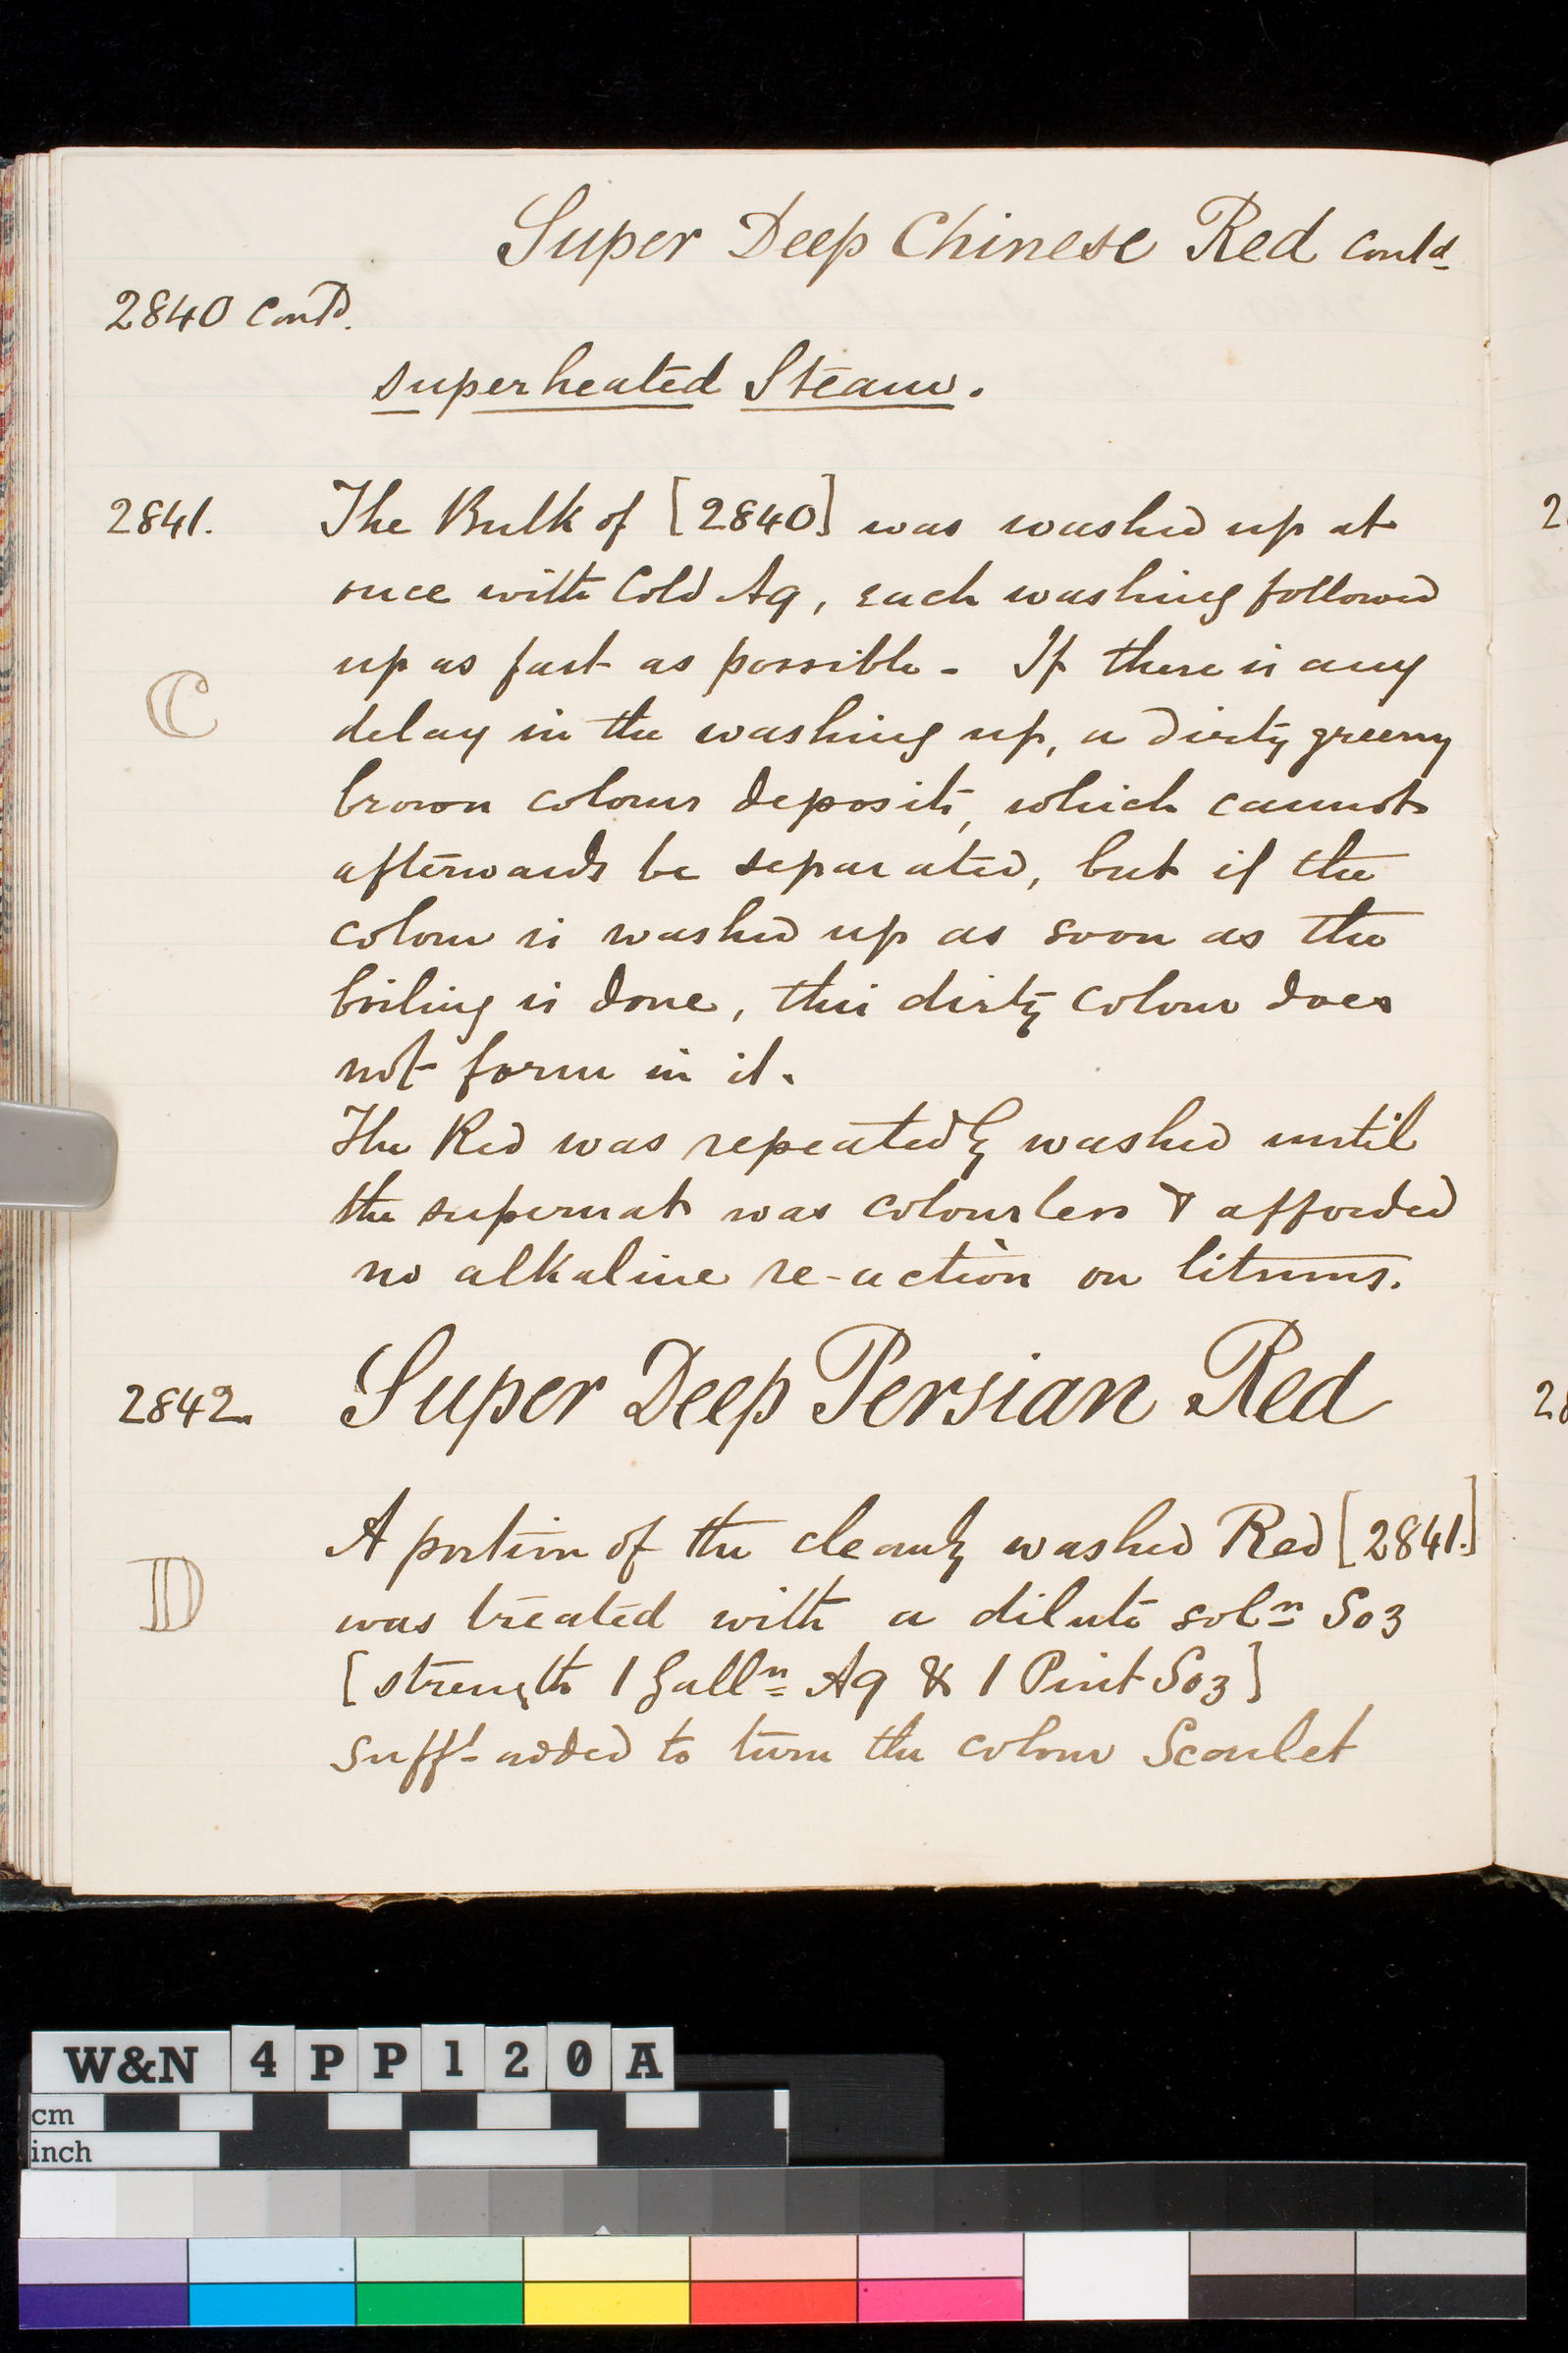 Super Deep Chinese Red Contd
2840 Contd.
superheated Steam.
2841. The Bulk of [2840] was washed up at
once with Cold Aq, each washing followed
up as fast as possible - If there is any
C
delay in the washing up, a dirty greeny
brown colour deposits, which cannot
afterwards be separated, but if the
colour is washed up as soon as the
boiling is done, this dirty colour does
not form in it.
The Red was repeatedly washed until
the supernat was colourless & afforded
no alkaline re-action on litmus.
2842. Super Deep Persian Red
A portion of the cleanly washed Red [2841.]
D was treated with a dilute soln So3
[strength 1 Galln Aq & 1 Pint So3]
sufft added to turn the colour Scarlet
2
28
W&N 4PP120A
cm
inch